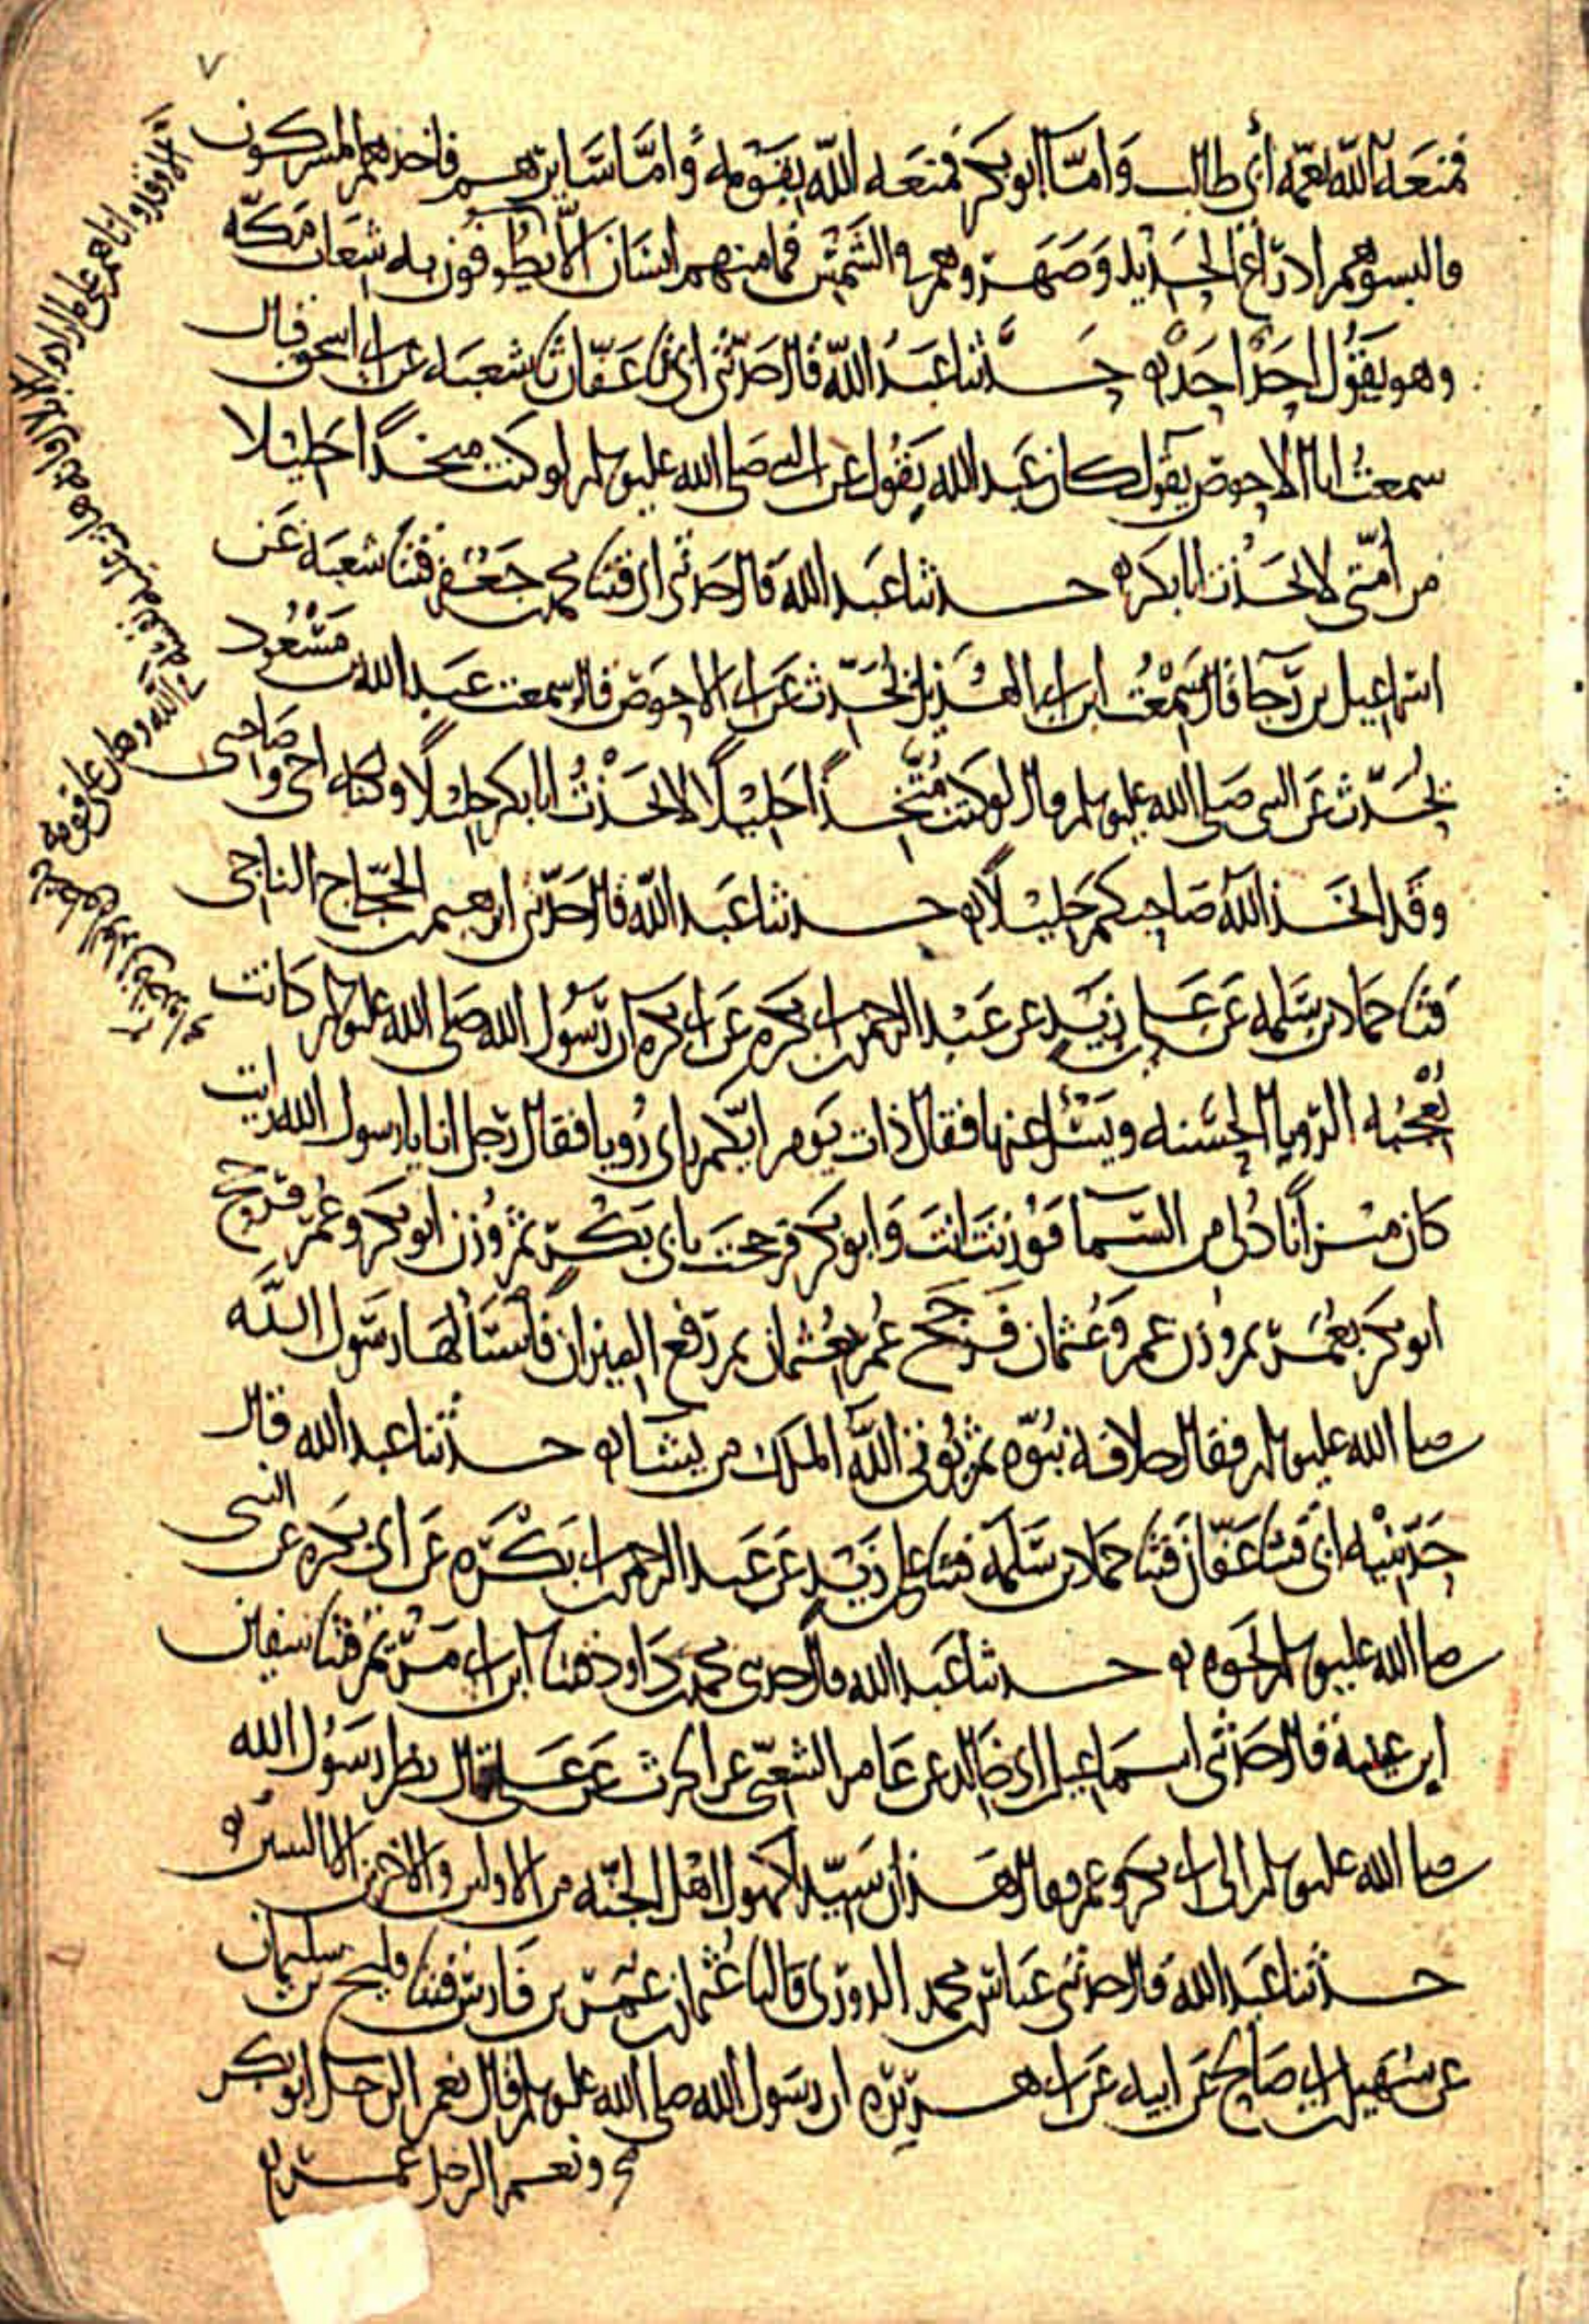 ٧
فمنعه الله بعمه أبي طالب وأما أبو بكر فمنعه الله بقومه وأما سايرهم فاخذهم المشركون
فالبسوهم ادراع الحديد وصهروهم في الشمس فما منهم انسان الا يطوفون به شعاب مكه
وهو يقول احد احد حدثنا عبد الله قال حدثني ابي ثنا عفان ثنا شعبه عن ابي اسحق قال
سمعت ابا الاحوص يقول كان عبد الله يقول عن النبي صلى الله عليه وسلم لو كنت متخذا خليلا
من أمتي لاتخذت ابا بكر حدثنا عبد الله قال حدثني ابي قثنا محمد بن جعفر قثنا شعبه عن
اسماعيل بن رجا قال سمعت ابن ابي الهذيل يحدث عن ابي الاحوص قال سمعت عبد الله بن مسعود
يحدث عن النبي صلى الله عليه وسلم قال لو كنت متخذا خليلا لاتخذت ابا بكر خليلا ولكنه اخي وصاحبي
وقد اتخذ الله صاحبكم خليلا حدثنا عبد الله قال حدثني ابرهيم بن الحجاج الناجي
قثنا حماد بن سلمه عن علي بن زيد عن عبد الرحمن بن ابي بكره عن ابي بكره ان رسول الله صلى الله عليه وسلم كانت
تعجبه الرويا الحسنه ويسئل عنها فقال ذات يوم ايكم راى رويا فقال رجل انا يا رسول الله رايت
كان ميزانا دلي من السما فوزنت انت وابو بكر فرجحت بابي بكر ثم وزن ابو بكر وعمر فرجح
ابو بكر بعمر ثم وزن عمر وعثمان فرجح عمر بعثمان ثم رفع الميزان فاستآلها رسول الله
صلى الله عليه وسلم فقال خلافة نبوه ثم يوتي الله الملك من يشا حدثنا عبد الله قال
حدثنيه ابي قثنا عفان قثنا حماد بن سلمه قثنا علي بن زيد عن عبد الرحمن بن ابي بكره عن ابي بكره عن النبي
صلى الله عليه وسلم نحوه حدثنا عبد الله قال حدثني محمد بن داود قثنا ابن ابي مريم قثنا سفيان
ابن عيينة قال حدثني اسماعيل بن ابي خالد عن عامر الشعبي عن الحرث عن علي قال نظر رسول الله
صلى الله عليه وسلم الى ابي بكر وعمر فقال هذان سيدا كهول اهل الجنه من الاولين والاخرين الا النبيين
حدثنا عبد الله قال حدثني عباس بن محمد الدوري قال ثنا عثمان بن عمر بن فارس قثنا فليح بن سليمان
عن سهيل بن ابي صالح عن ابيه عن ابي هريره ان رسول الله صلى الله عليه وسلم قال نعم الرجل ابو بكر
ونعم الرجل عمر